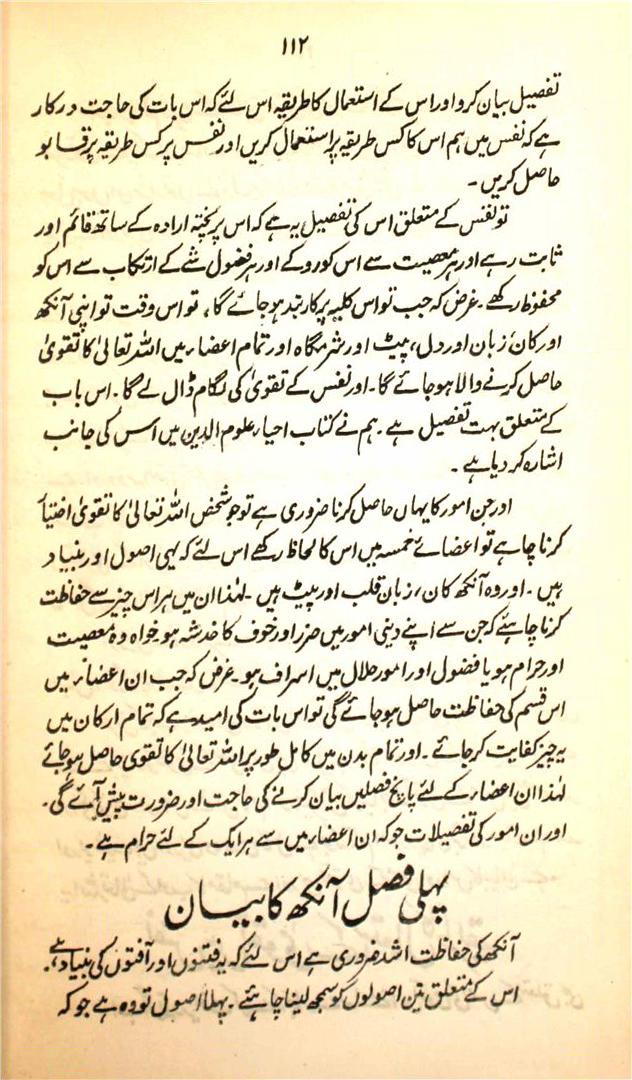 ۱۱۲
تفصیل بیان کرو اور اس کے استعمال کا طریقہ اس لئے کہ اس بات کی حاجت درکار
ہے کہ نفس میں ہم اس کا کس طریقہ پر استعمال کریں اور نفس پر کس طریقہ پر قابو
حاصل کریں۔
تو نفس کے متعلق اس کی تفصیل یہ ہے کہ اس پر پختہ ارادہ کے ساتھ قائم اور
ثابت رہے اور ہر معصیت سے اس کو روکے اور ہر فضول شے کے ارتکاب سے اس کو
محفوظ رکھے۔ غرض کہ جب تو اس کلیہ پر کاربند ہو جائے گا، تو اس وقت تو اپنی آنکھ
اور کان، زبان اور دل، پیٹ اور شرمگاہ اور تمام اعضاء میں اللہ تعالیٰ کا تقویٰ
حاصل کرنے والا ہو جائے گا۔ اور نفس کے تقویٰ کی لگام ڈال لے گا۔ اس باب
کے متعلق بہت تفصیل ہے۔ ہم نے کتاب احیاء علوم الدین میں اس کی جانب
اشارہ کر دیا ہے۔
اور جن امور کا یہاں حاصل کرنا ضروری ہے تو جو شخص اللہ تعالیٰ کا تقویٰ اختیار
کرنا چاہے تو اعضائے خمسہ میں اس کا لحاظ رکھے اس لئے کہ یہی اصول اور بنیاد
ہیں۔ اور وہ آنکھ کان، زبان قلب اور پیٹ ہیں۔ لہٰذا ان میں ہر اس چیز سے حفاظت
کرنا چاہئے کہ جن سے اپنے دینی امور میں ضرر اور خوف کا خدشہ ہو۔ خواہ وہ معصیت
اور حرام ہو یا فضول اور امور حلال میں اسراف ہو۔ غرض کہ جب ان اعضاء میں
اس قسم کی حفاظت حاصل ہو جائے گی تو اس بات کی امید ہے کہ تمام ارکان میں
یہ چیز کفایت کر جائے۔ اور تمام بدن میں کامل طور پر اللہ تعالیٰ کا تقویٰ حاصل ہو جائے
لہٰذا ان اعضاء کے لئے پانچ فصلیں بیان کرنے کی حاجت اور ضرورت پیش آئے گی۔
اور ان امور کی تفصیلات جو کہ ان اعضاء میں سے ہر ایک کے لئے حرام ہے۔
پہلی فصل آنکھ کا بیان
آنکھ کی حفاظت اشد ضروری ہے اس لئے کہ یہ فتنوں اور آفتوں کی بنیاد ہے۔
اس کے متعلق تین اصولوں کو سمجھ لینا چاہئے۔ پہلا اصول تو وہ ہے جو کہ